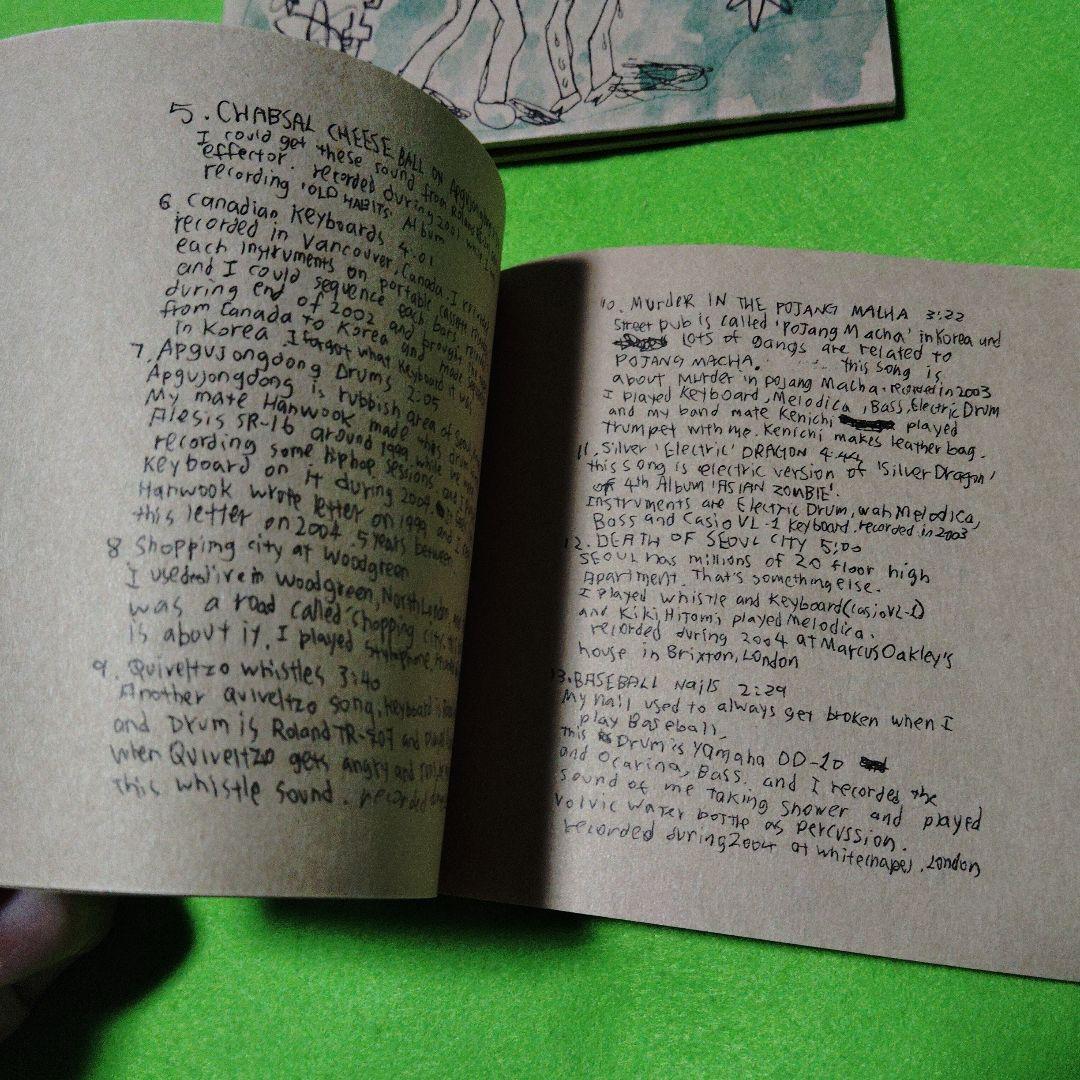 5. CHABSAL CHEESE BALL ON
I could get these sound from Roland
effector. recorded during 2001 while I
recording 'OLD HABITS' Album
6 Canadian Keyboards 4:01
recorded in Vancouver, Canada. I
each instruments on portable cassette
and I could sequence each bars
during end of 2002 and brought
from Canada to Korea and made
in Korea I forgot what keyboard it was
7. Apgujongdong Drums 2:05
Apgujongdong is rubbish area of Seoul
My mate Hanwook made this drum
Alesis SR-16 around 1999 while we were
recording some hiphop sessions and I
keyboard on it during 2004
Hanwook wrote letter on 1999 and I
this letter on 2004. 5 years between
8 Shopping city at Woodgreen
I used live in Woodgreen, North London
was a road called 'Shopping city'
is about it. I played
9. Quiveltzo whistles 3:40
Another quiveltzo song, keyboard is
and Drum is Roland TR-707 and
when Quiveltzo gets angry and
this whistle sound. recorded
10. Murder IN THE POJANG MACHA 3:22
Street pub is called 'Pojang Macha' in Korea und
lots of gangs are related to
POJANG MACHA. this song is
about Murder in pojang Macha. recorded in 2003
I played Keyboard, Melodica, Bass, Electric Drum
and my band mate Kenichi played
trumpet with me. Kenichi makes leather bag.
11. Silver 'Electric' DRAGON 4:44
this song is electric version of 'Silver Dragon'
of 4th Album 'ASIAN ZOMBIE'.
Instruments are Electric Drum, wah Melodica,
Bass and Casio VL-1 Keyboard. recorded in 2003
12. DEATH OF SEOUL CITY 5:00
SEOUL has millions of 20 floor high
Apartment. That's something else.
I played whistle and Keyboard (casio VL-1)
and Kiki Hitomi played Melodica.
recorded during 2004 at Marcus Oakley's
house in Brixton, London
13. BASEBALL Nails 2:29
My nail used to always get broken when I
play Baseball.
this Drum is Yamaha DD-10
and Ocarina, Bass. and I recorded the
sound of me taking shower and played
Volvic water bottle as percussion.
recorded during 2004 at whitechapel, London